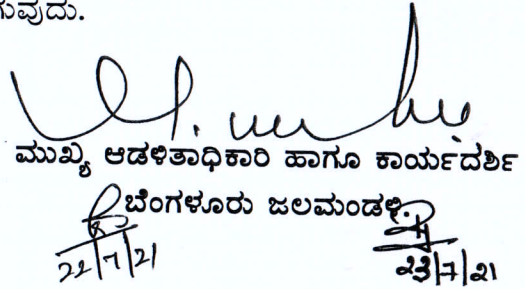 ಗುವುದು.
ಮುಖ್ಯ ಆಡಳಿತಾಧಿಕಾರಿ ಹಾಗೂ ಕಾರ್ಯದರ್ಶಿ
ಬೆಂಗಳೂರು ಜಲಮಂಡಳಿ.
22/7/21 23/7/21